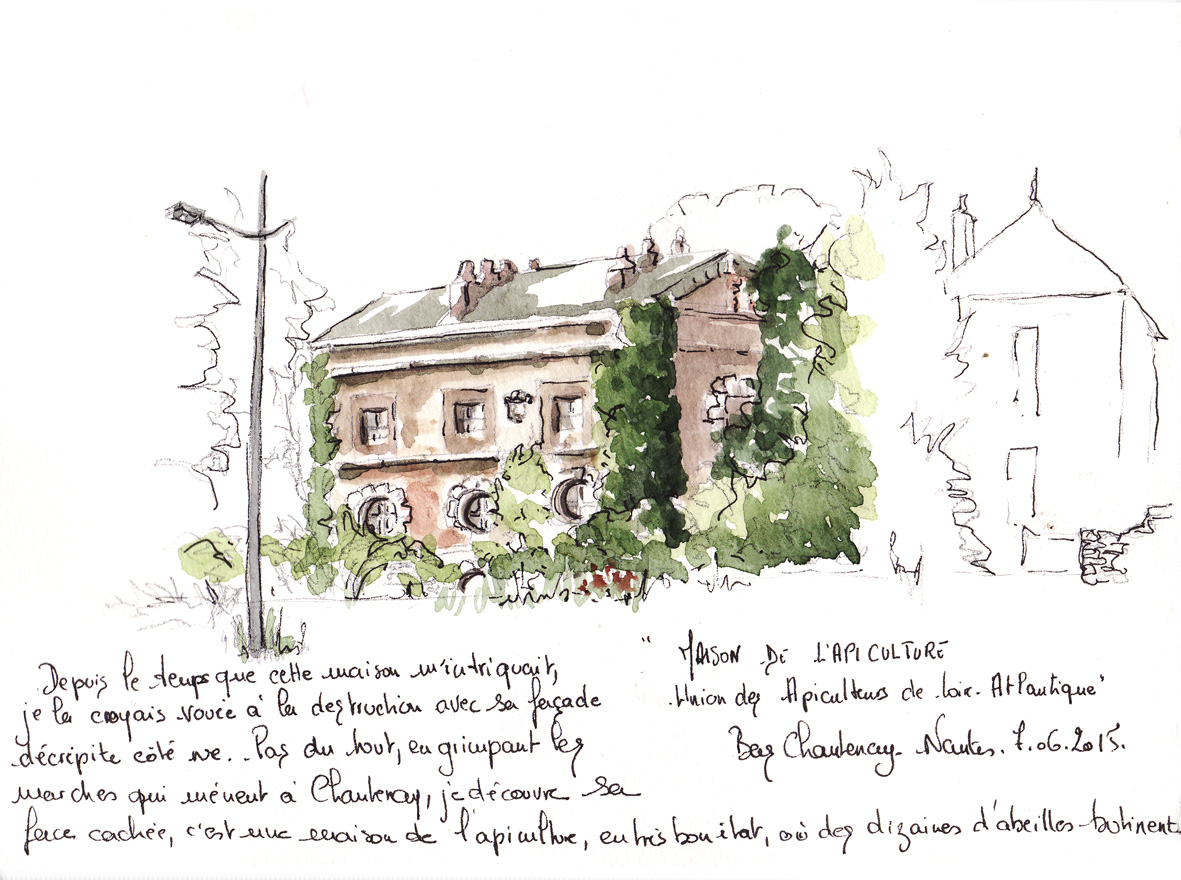 Depuis le temps que cette maison m'intriguait,
je la croyais vouée à la destruction avec sa façade
décrépite côté rue.. Pas du tout, en grimpant les
marches qui mènent à Chantenay, je découvre sa
face cachée, c'est une maison de l'apiculture, en très bon état, où des dizaines d'abeilles butinent
" MAISON DE L'APICULTURE
Union des Apiculteurs de Loire-Atlantique"
Bas Chantenay - Nantes. 7.06.2015.